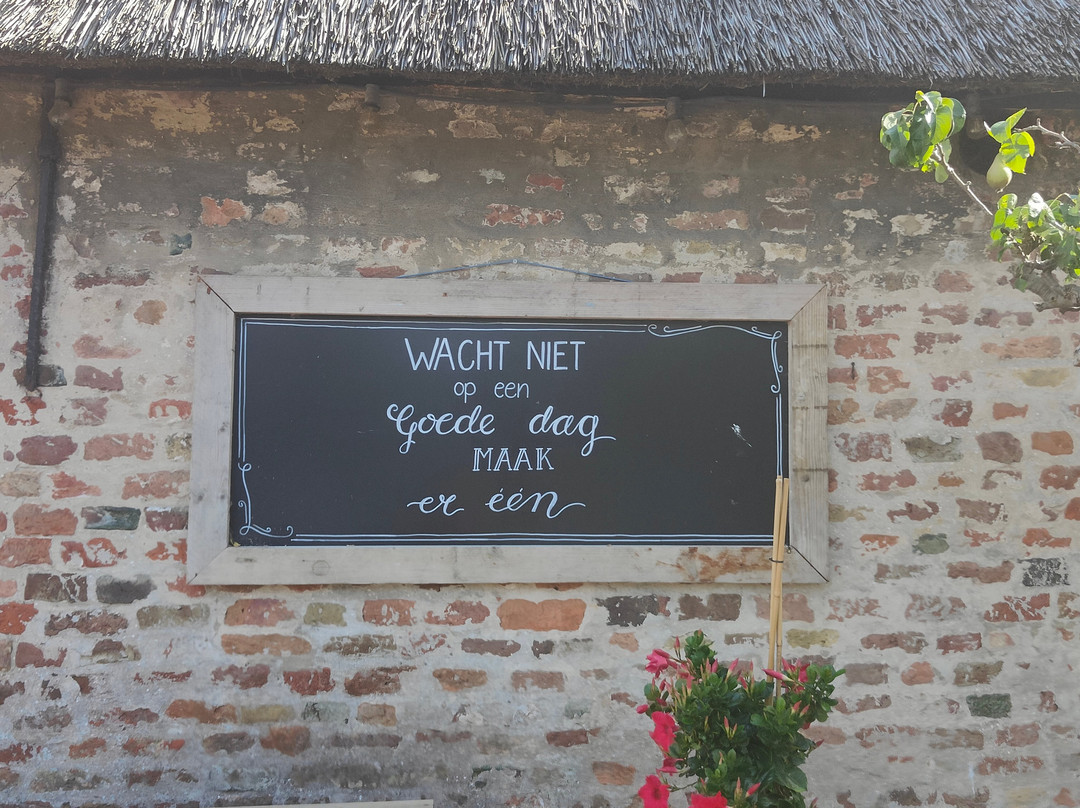 WACHT NIET
op een
Goede dag
MAAK
er één